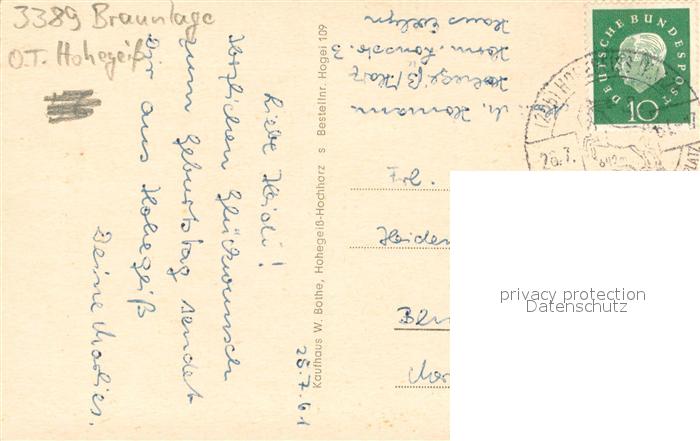 3389 Braunlage
O.T. Hohegeiß
25.7.61
Liebe Heidi!
Herzlichen Glückwunsch
zum Geburtstag sendet
Dir aus Hohegeiß
Deine Marlies.
Kaufhaus W. Bothe, Hohegeiß-Hochharz s Bestellnr. Hogei 109
Homann
Hohegeiß/Harz
Haus Evelyn
DEUTSCHE BUNDESPOST
10
26.7.
PLATZ
Frl.
Heiden
privacy protection
Datenschutz